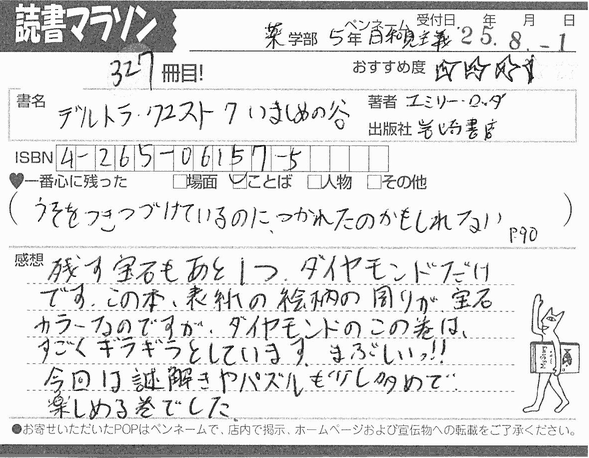 読書マラソン
薬学部 5年 ペンネーム 日和見主義 受付日. 年 月 日 25.8.-1
327冊目! おすすめ度 ☆☆☆☆
書名 デルトラ・クエスト 7 いましめの谷
著者 エミリー・ロッダ
出版社 岩崎書店
ISBN 4-265-06157-5
♥一番心に残った □場面 □ことば □人物 □その他
(うそをつきつづけているのに、つかれたのかもしれない P90)
感想 残す宝石もあと1つ、ダイヤモンドだけ
です。この本、表紙の絵柄の周りが宝石
カラーなのですが、ダイヤモンドのこの巻は、
すごくギラギラとしています。まぶしいっ!!
今回は謎解きやパズルも少し多めで
楽しめる巻でした。
●お寄せいただいたPOPはペンネームで、店内で掲示、ホームページおよび宣伝物への転載をご了承ください。